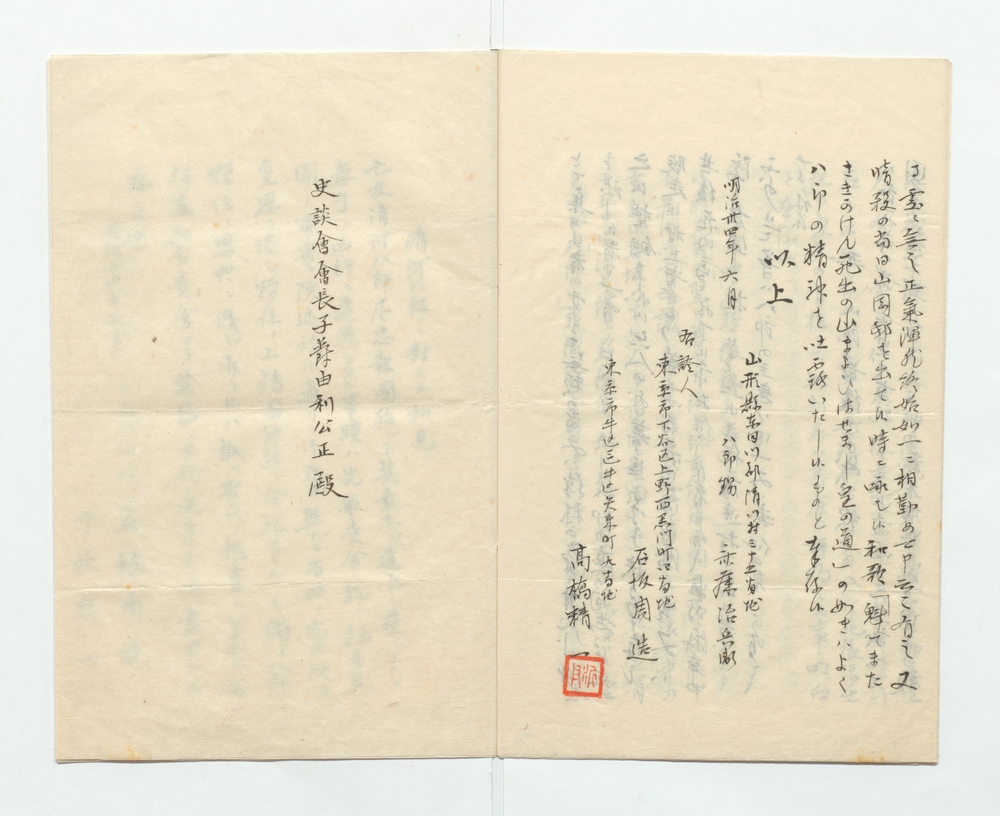 正氣渾然終始如一ニ相勤め 有之又
暗殺の當日山岡邸を出てし時ニ咏セし和歌「魁てまた
さきかけん死出の山まよひはせまし皇の道」の如きハよく
八郎の精神を吐露いたしものと奉存候
以上
明治卅四年六月
山形縣東田川郡清川村三十五番地
八郎甥 斎藤治兵衛
右證人
東京市下谷区上野西黒門町 番地
石坂周造
東京市牛込区牛込矢来町九番地
高橋精一
史談會會長子爵由利公正殿